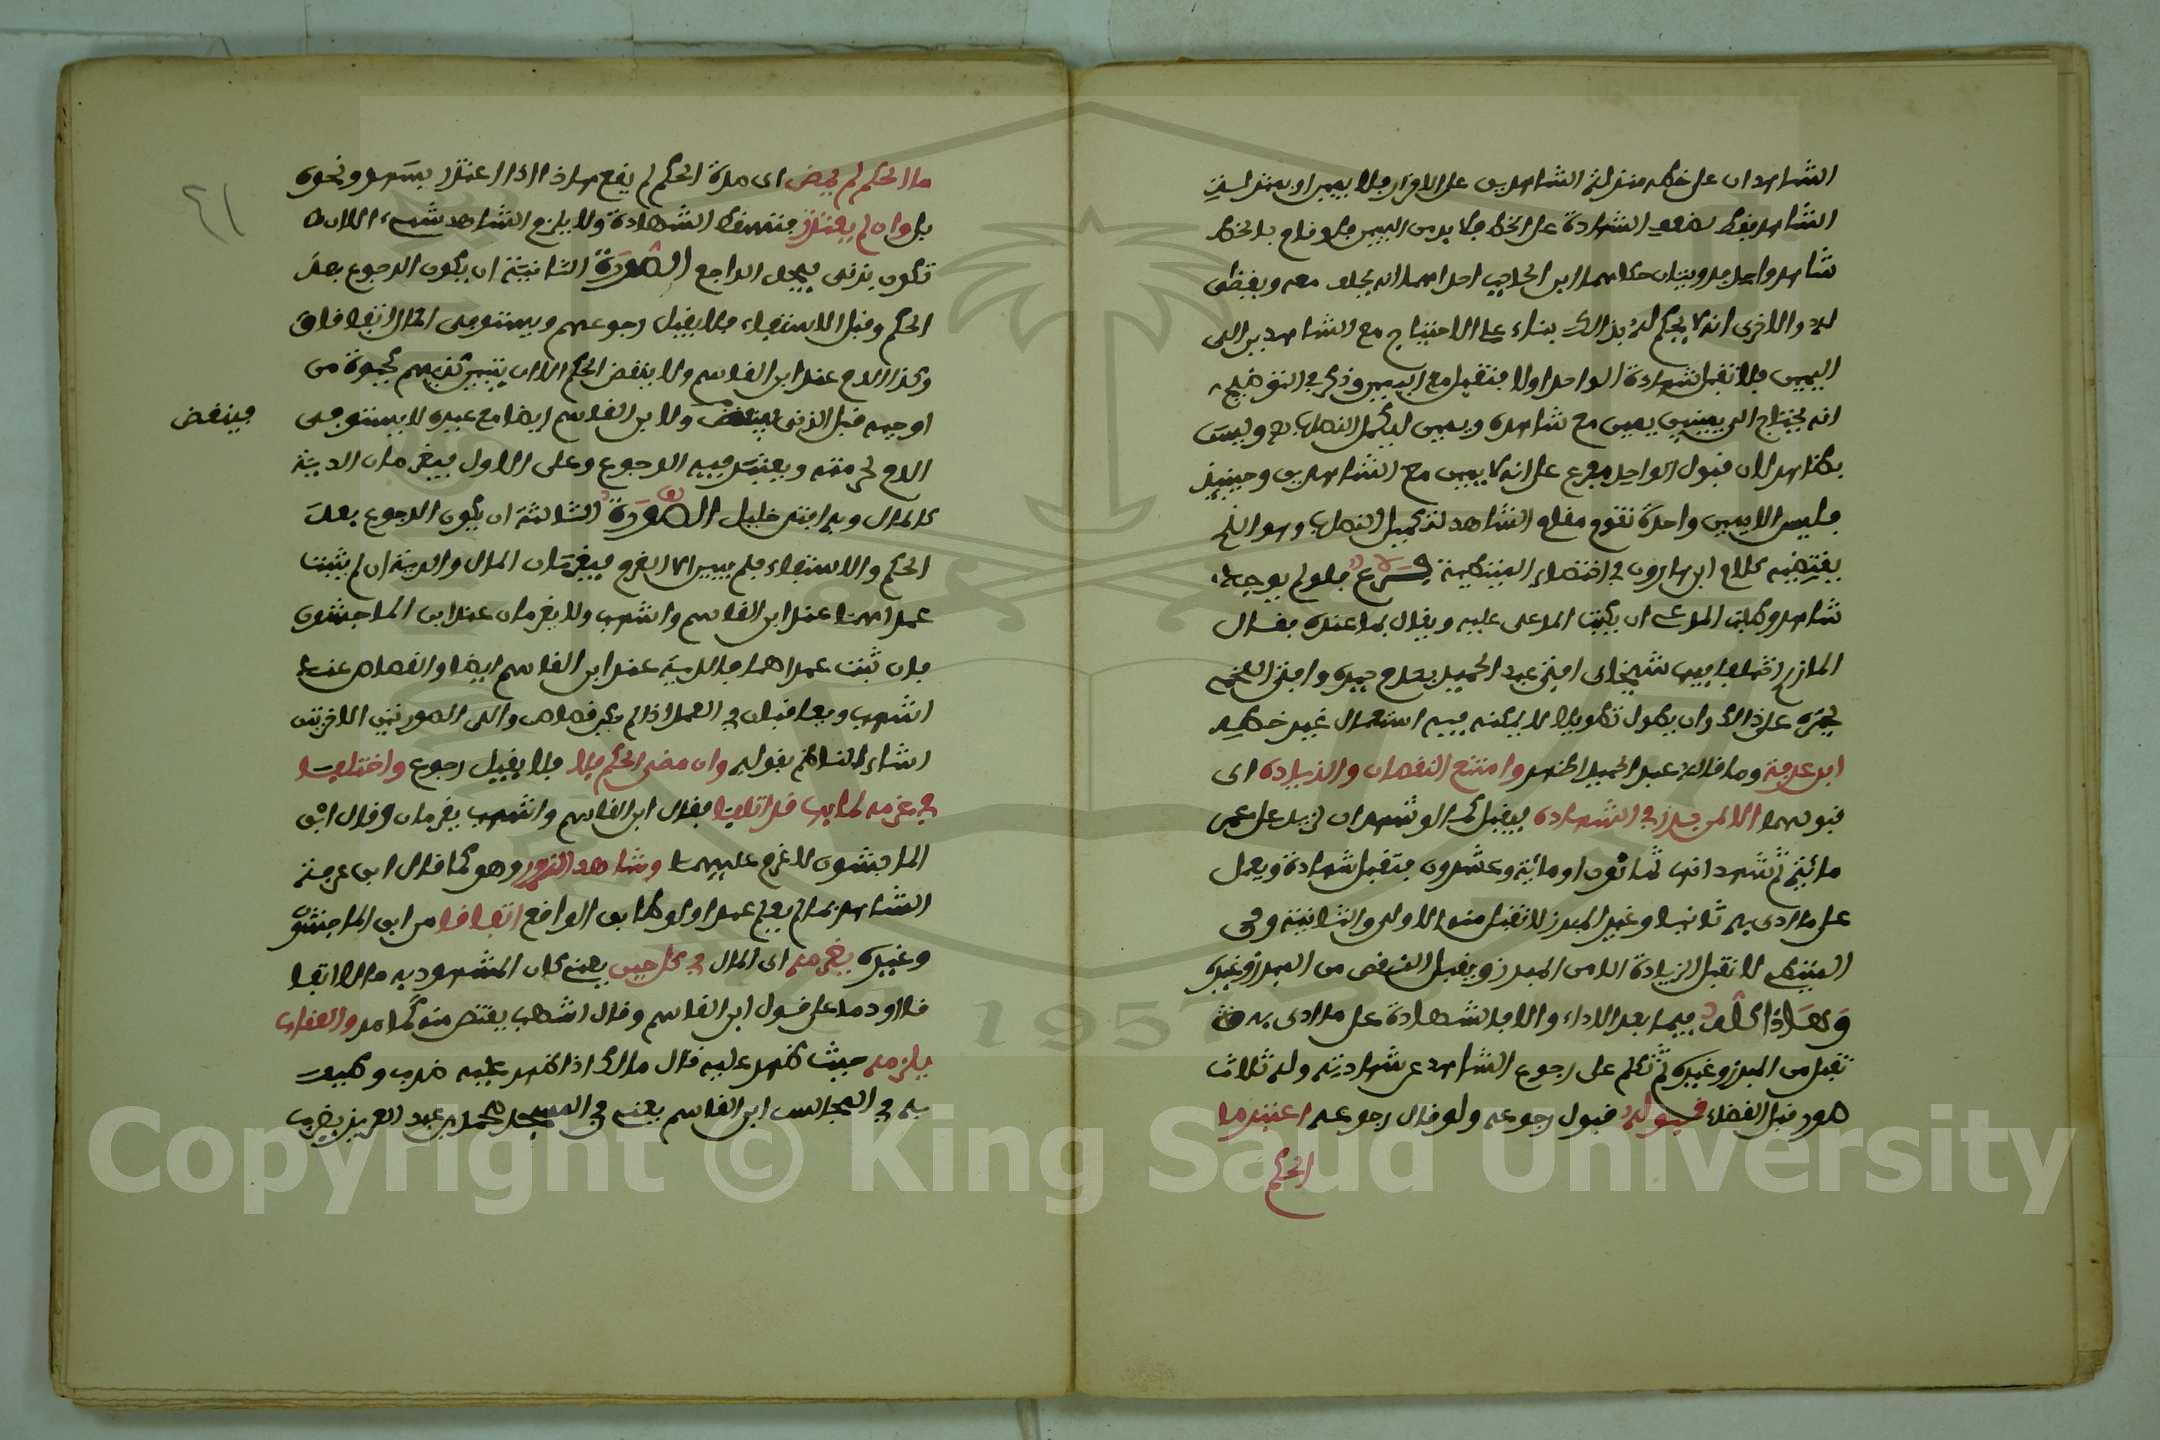 الشاهدان على خطه منزلة الشاهدين على الاقرار فلا يمين او بمنزلة
الشاهد فقط لضعف الشهادة على الخط فلا بد من اليمين فلو قام بالخط
شاهد واحد فروايتان حكاهما ابن الجلاب احداهما انه يحلف معه ويقضى
له والاخرى انه لا يحكم له بذلك بناء على الاحتياج مع الشاهدين الى
اليمين فلا تقبل شهادة الواحد اولا فتقبل مع اليمين وذكر في التوضيح
انه يحتاج الى يمينين يمين مع شاهده ويمين ليكمل النصاب وليس
بظاهر لان قبول الواحد مفرع على انه لا يمين مع الشاهدين وحينئذ
فليس الا يمين واحدة تقوم مقام الشاهد لتكميل النصاب وهو الذي
يقتضيه كلام ابن هارون في اختصار المتيطية فرع فلو لم يوجد
شاهد وطلب المدعي ان يكتب المدعى عليه ويقال بما عنده فقال
المازري فيها شيخاي افتى عبد الحميد بعدم جبره وافتى اللخمي
بجبره على ذلك وان يطول تطويلا لا يمكنه فيه استعمال غير خطه
ابن عرفة وما قاله عبد الحميد اظهر وامتنع النقصان والزيادة اى
قبولهما الا لمن برز في الشهادة فيقبل كما لو شهد ان لزيد على عمرو
مائة ثم شهد انها ثمانون او مائة وعشرون فتقبل شهادة ويعمل
على ما ادى به ثانيا وغير المبرز لا تقبل منه الاولى والثانية وفي
المتيطي لا تقبل الزيادة الا من المبرز ويقبل النقص من المبرز وغيره
وهذا كله فيما بعد الاداء والا فالشهادة على ما ادى به
تقبل من المبرز وغيره ثم تكلم على رجوع الشاهد عن شهادته وله ثلاث
صور قبل القضاء قبوله قبول رجوعه ولو قال رجوعه اعتبر ما
الحكم
ما الحكم لم يمض اى مدة الحكم لم يقع هاذا اذا اعتذر بسهو ونحوه
بل وان لم يعتذر فتسقط الشهادة ولا يلزم الشاهد شيء الا ان
تكون بزنى فيحد الراجع الصورة الثانية ان يكون الرجوع بعد
الحكم وقبل الاستيفاء فلا يقبل رجوعهم ويستوفى المال اتفاقا
وكذا الدم عند ابن القاسم ولا ينقض الحكم الا ان يتبين كذبهم كحياة من
اوجبه قبل الزنى فينقض ولابن القاسم ايضا مع غيره لا يستوفى
فينقض
الدم لحرمته ويعتبر فيه الرجوع وعلى الاول فيغرمان الدية
كالمال وبه افتى خليل الصورة الثالثة ان يكون الرجوع بعد
الحكم والاستيفاء فلم يبق الا الغرم فيغرمان المال والدية ان لم يثبت
عمدهما عند ابن القاسم واشهب ولا يغرمان عند ابن الماجشون
فان ثبت عمدهما فالدية عند ابن القاسم ايضا والقصاص عند
اشهب ويعاقبان في العمد اذا لم يكن قصاص والى الصورتين الاخرتين
اشار الناظم بقوله وان مضى الحكم فلا فلا يقبل رجوع واختلفا
في غرمه لما بها قد اتلفا فقال ابن القاسم واشهب يغرمان وقال ابن
الماجشون لا غرم عليهما وشاهد الزور وهو كما قال ابن عرفة
الشاهد بما لم يعلم عمدا ولو طابق الواقع اتفاقا من ابن الماجشون
وغيره يغرمه اى المال في كل حين يعني كان المشهود به مالا اتفاقا
او دما على قول ابن القاسم وقال اشهب يقتص منه كما مر والعقاب
يلزمه حيث ظهر عليه قال مالك اذا ظهر عليه ضرب وطيف
به في المجالس ابن القاسم يعني في المسجد محمد بن عبد العزيز يضرب
٢١
Copyright © King Saud University
1957